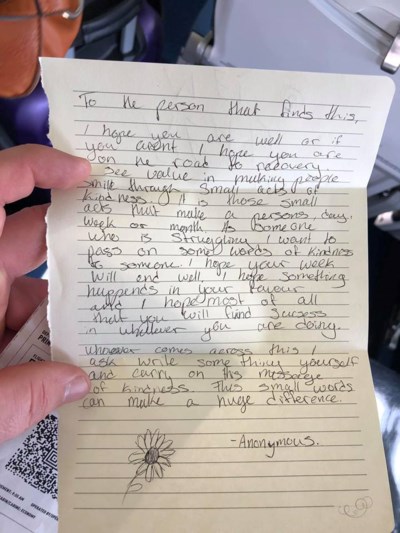 To the person that finds this,
I hope you are well or if
you arent I hope you are
on the road to recovery.
I see value in making people
smile through small acts of
kindness. It is those small
acts that make a persons, day,
week or month. As someone
who is struggling I want to
pass on some words of kindness
to someone. I hope your week
will end well, hope something
happends in your favour
and I hope most of all
that you will fund
in whatever you are doing.
whoever comes across this I
ask write some thing yourself
and carry on this message
of kindness. This small words
can make a huge difference.
-Anonymous.